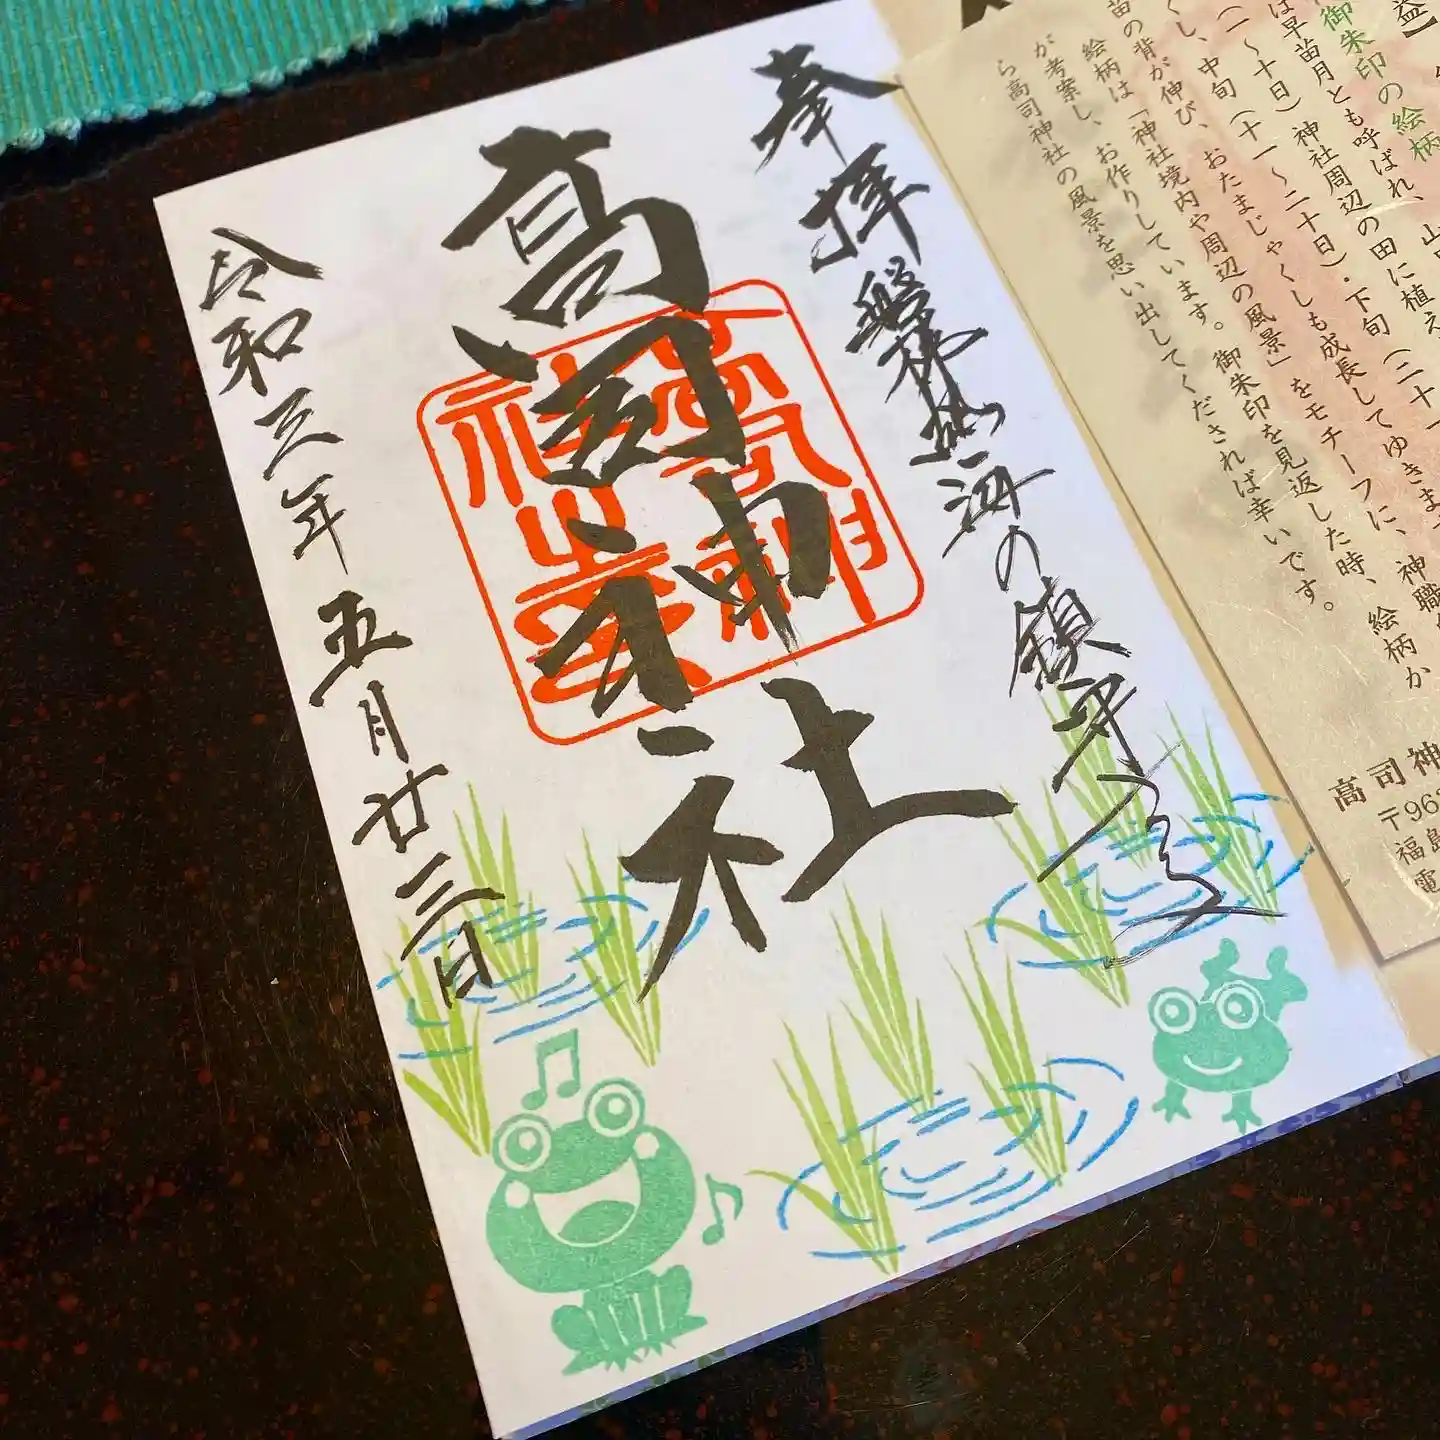 奉拝
磐梯熱海の鎮守
高司神社
高司神社之璽
令和三年
五月廿三日
益】
御朱印の絵柄
は早苗月とも呼ばれ、
〜十日）神社周辺の田に植え
し、中旬（十一〜二十日）・下旬（二十一
苗の背が伸び、おたまじゃくしも成長してゆきま
絵柄は「神社境内や周辺の風景」をモチーフに、神職
が考案し、お作りしています。御朱印を見返した時、絵柄か
ら高司神社の風景を思い出してくだされば幸いです。
高司神
〒963
福島
電